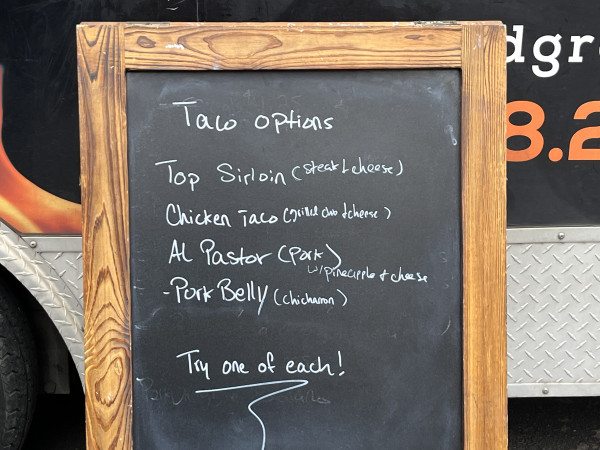 Taco options
Top Sirloin (steak & cheese)
Chicken Taco (grilled chx & cheese)
AL Pastor (Pork)
w/ pineapple & cheese
- Pork Belly (chicharron)
Try one of each!
dgr
8.2